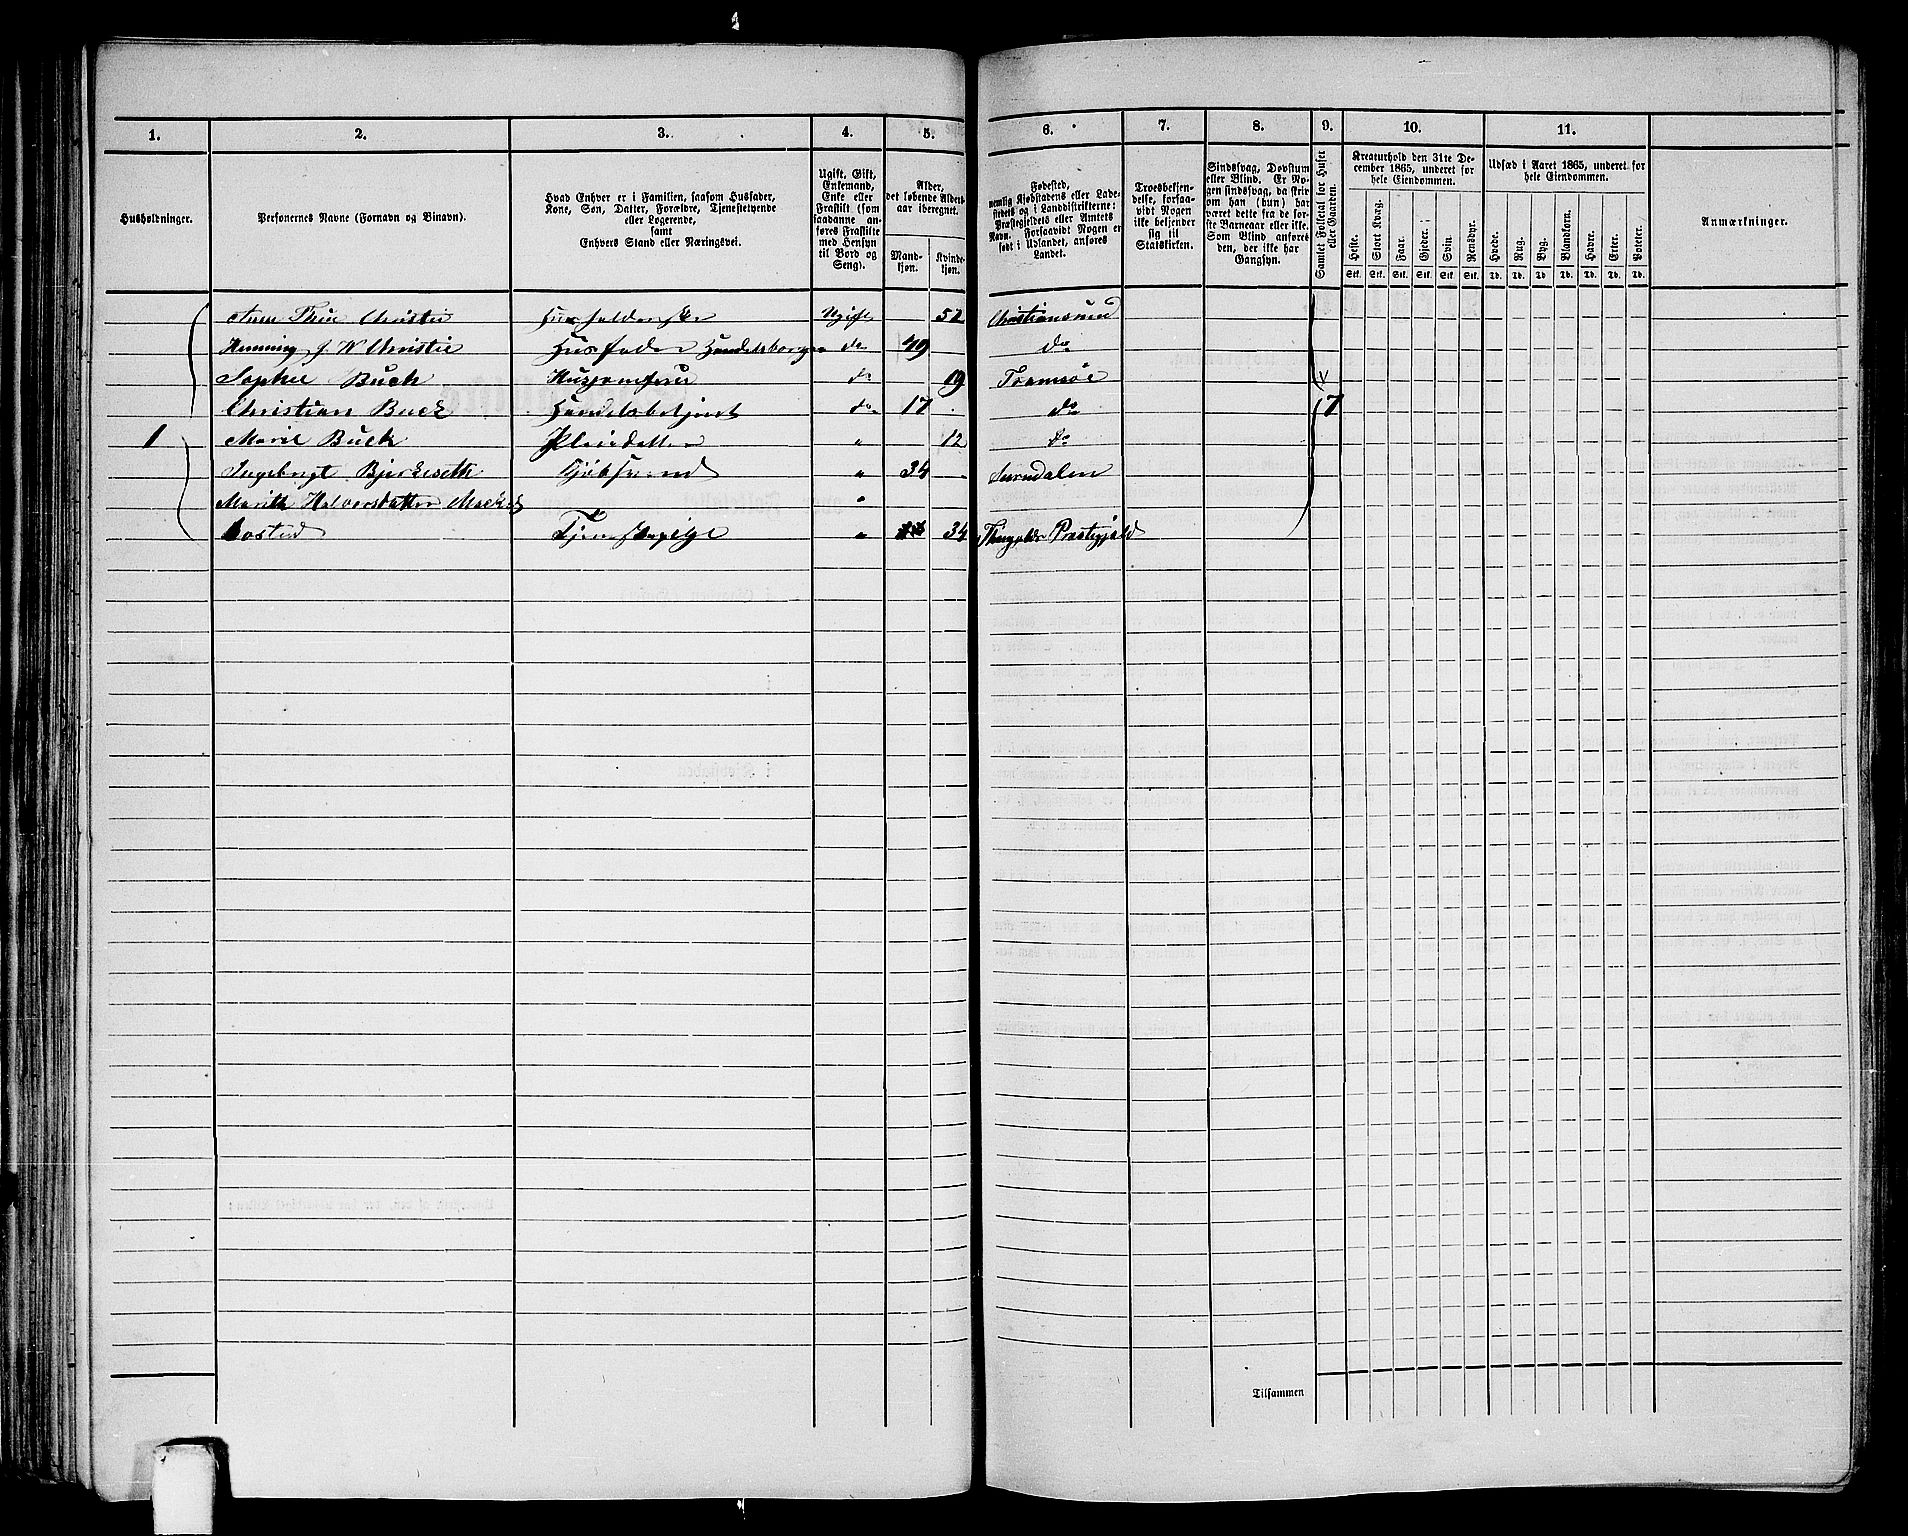 1. 2. 3. 4. 5. 6. 7. 8. 9. 10. 11.
Husholdninger.
Personernes Navne (Fornavn og Binavn).
Hvad Enhver er i Familien, saasom Husfader,
Kone, Søn, Datter, Forældre, Tjenestetyende
eller Logerende,
samt
Enhvers Stand eller Næringsvei.
Ugift, Gift,
Enkemand,
Enke eller
Fraskilt (som
saadanne an-
føres Fraskilte
med Hensyn
til Bord og
Seng).
Alder,
det løbende Alders-
aar iberegnet.
Mand-
kjøn.
Kvinde-
kjøn.
Fødested,
nemlig Kjøbstadens eller Lade-
stedets og i Landdistrikterne:
Præstegjeldets eller Amtets
Navn. Forsaavidt Nogen er
født i Udlandet, anføres
Landet.
Troesbekjen-
delse, forsaa-
vidt Nogen
ikke bekjender
sig til
Statskirken.
Sindssvag, Døvstum
eller Blind. Er No-
gen sindssvag, da skri-
ves om han (hun) har
været dette fra de før-
ste Barneaar eller ikke.
Som Blind anføres
den, der ikke har
Gangsyn.
Samlet Folketal for Huset
eller Gaarden.
Kreaturhold den 31te De-
cember 1865, underet for
hele Eiendommen.
Heste. Stort Kvæg. Faar. Gjeder. Svin. Rensdyr.
Stk. Stk. Stk. Stk. Stk. Stk.
Udsæd i Aaret 1865, underet for
hele Eiendommen.
Hvede. Rug. Byg. Blandkorn. Havre. Erter. Poteter.
Td. Td. Td. Td. Td. Td. Td.
Anmærkninger.
Christie Husholderske Ugift 52 Christiansund
Henning J. W Christie Husfader Handelsborger do 49 do
Sophie Buck Huusjomfru do 19 Tromsöe
Christian Buck Handelsbetjent do 17 do 7
1 Marie Buck Pleiedatter " 12 do
Ingebrigt Bjerkeseth " 34 Surendalen
Marith Halversdatter
Tjenestepige " 34 Thingvolds Præstegjæld
Tilsammen